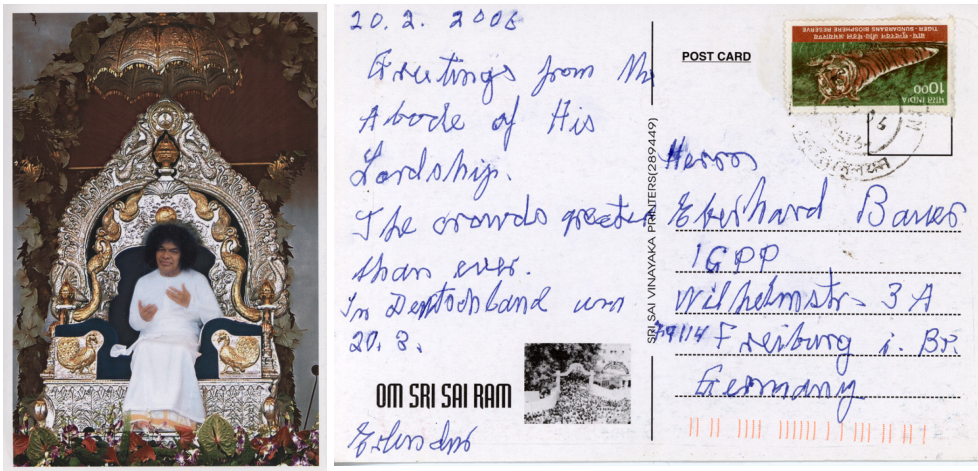 20. 2. 2006
Greetings from the
Abode of His
Lordship.
The crowds greater
than ever.
In Deutschland um
20. 3.
OM SRI SAI RAM
Erlendur
SRI SAI VINAYAKA PRINTERS(289449)
POST CARD
TIGER - SUNDARBANS BIOSPHERE RESERVE
भारत INDIA
1000
Eberhard Bauer
IGPP
Wilhelmstr- 3 A
Freiburg i. Br.
Germany